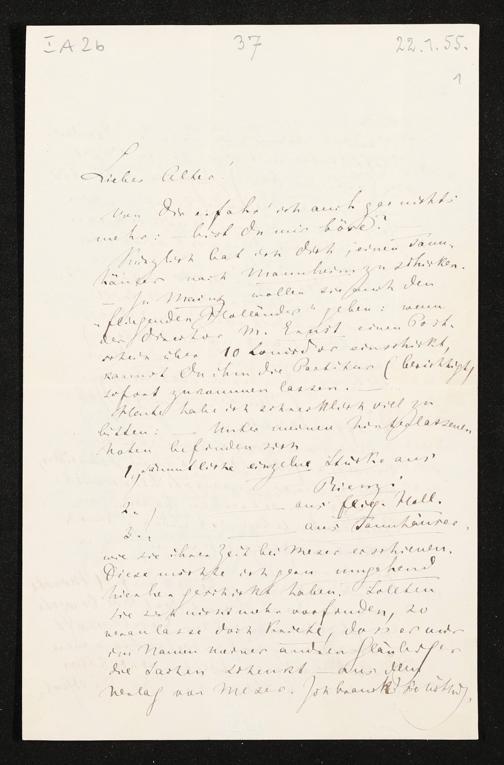 I A 2b 37 22.1.55.
1
Lieber Alter!
Von Dir erfahr' ich auch gar nichts
mehr: – bist Du mir böse?
Kürzlich bat ich Dich, einen Tann-
häuser nach Mannheim zu schicken.
– In Mainz wollen sie auch den
"fliegenden Holländer" geben: wenn
der Direktor M. Ernst einen Post-
schein über 10 Louisd'or einschickt,
kannst Du ihm die Partitur (berichtigt)
sofort zukommen lassen. –
Heute habe ich schrecklich viel zu
bitten: – Unter meinen hinterlassenen
Noten befinden sich
1, sämmtliche einzelne Stücke aus
Rienzi
2.) — aus flieg. Holl.
3.) — aus Tannhäuser.
wie sie ihrer Zeit bei Meser erschienen.
Diese möchte ich gern umgehend
hierher geschickt haben. Sollten
sie sich nicht mehr vorfinden, so
veranlasse doch, dass er mir
im Namen meiner andren Gläubiger
die Sachen schenkt – aus dem
Verlag von Meser. Ich brauche sie